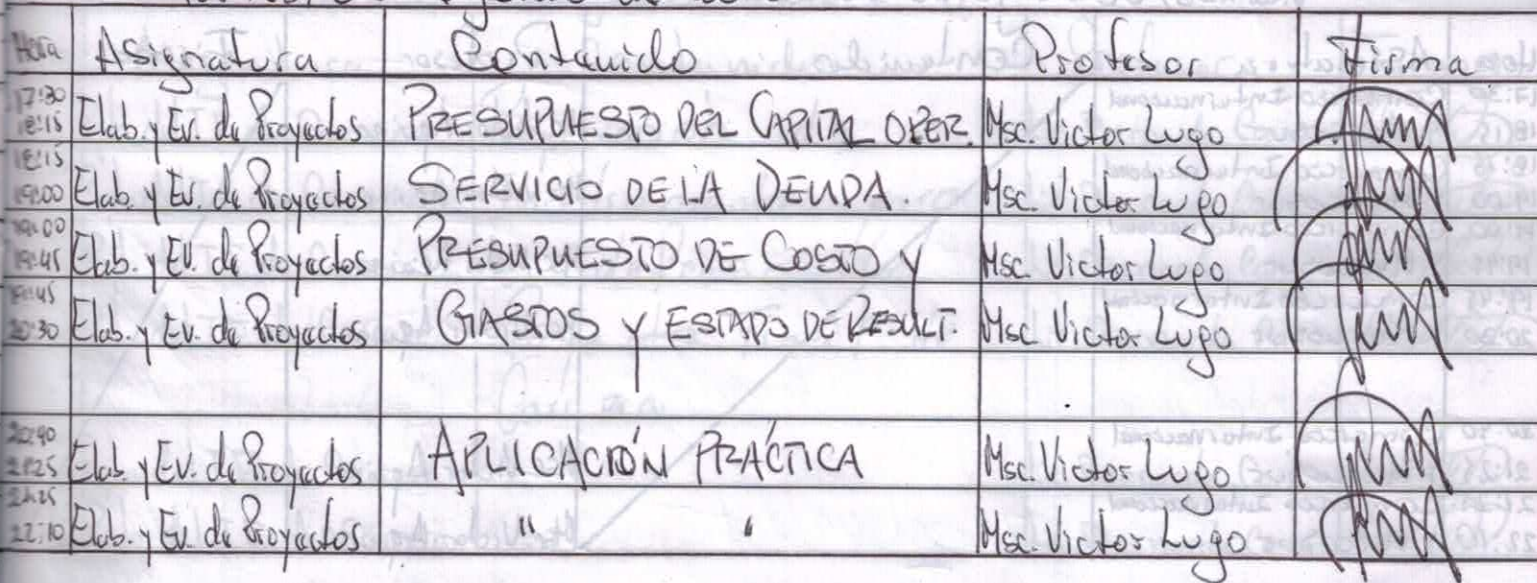 Hora Asignatura Contenido Profesor Firma
17:30 18:15 Elab. y Ev. de Proyectos PRESUPUESTO DEL CAPITAL OPER. Msc. Victor Lugo
18:15 19:00 Elab. y Ev. de Proyectos SERVICIO DE LA DEUDA. Msc. Victor Lugo
19:00 19:45 Elab. y Ev. de Proyectos PRESUPUESTO DE COSTO Y Msc. Victor Lugo
19:45 20:30 Elab. y Ev. de Proyectos GASTOS Y ESTADO DE RESULT. Msc. Victor Lugo
20:40 21:25 Elab. y Ev. de Proyectos APLICACIÓN PRÁCTICA Msc. Victor Lugo
21:25 22:10 Elab. y Ev. de Proyectos " " Msc. Victor Lugo